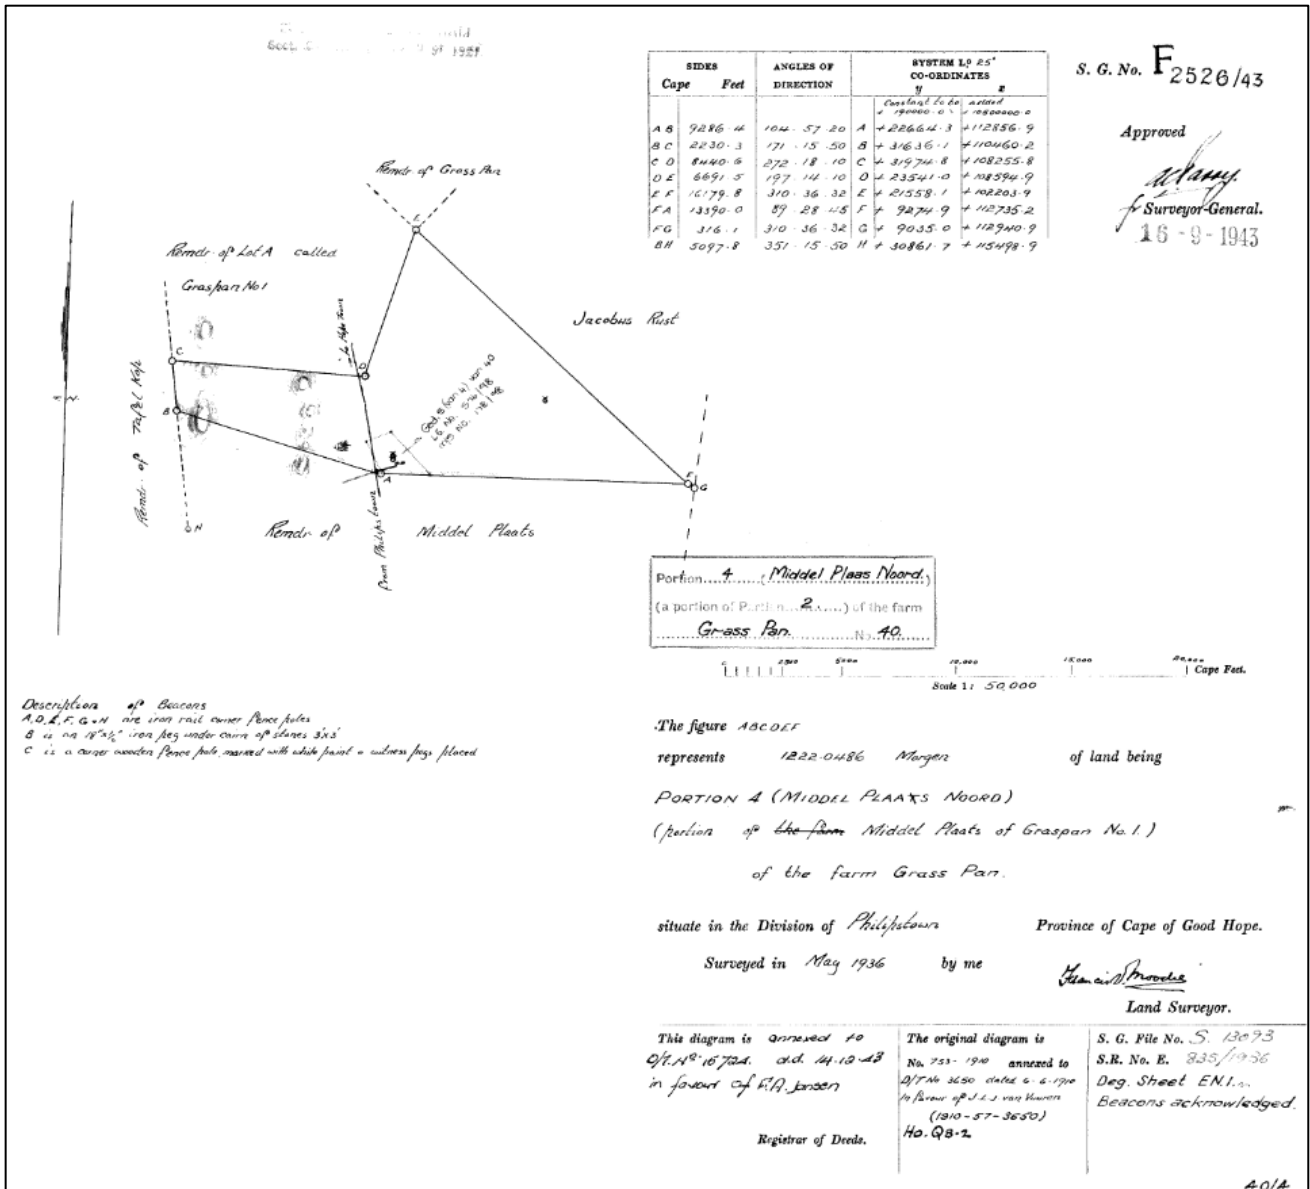 S. G. No. F2526/43
Approved
for Surveyor-General.
16-9-1943
SIDES
Cape Feet
ANGLES OF
DIRECTION
SYSTEM Lº 25°
CO-ORDINATES
y x
Constant to be added
+ 190000.0 + 10800000.0
A B 9286.4 104.57.20 A + 22664.3 + 112856.9
B C 2230.3 171.15.50 B + 31636.1 + 110460.2
C D 8440.6 272.18.10 C + 31974.8 + 108255.8
D E 6691.5 197.14.10 D + 23541.0 + 108594.9
E F 16179.8 310.36.32 E + 21558.1 + 102203.9
F A 13390.0 89.28.45 F + 9274.9 + 112735.2
F G 316.1 310.36.32 G + 9035.0 + 112940.9
B H 5097.8 351.15.50 H + 30861.7 + 115498.9
Remdr of Grass Pan
E
Remdr of Lot A called
Graspan No 1
to Hope Town
Jacobus Rust
C
D
Remdr of Tafel Kop
B
A
F
G
H
Remdr of Middel Plaats
From Philipstown
Portion 4 (Middel Plaas Noord.)
(a portion of Portion 2) of the farm
Grass Pan. No 40.
0 2500 5000 10,000 15,000 20,000 Cape Feet.
Scale 1: 50,000
Description of Beacons
A, D, E, F, G & H are iron rail corner fence poles
B is an 18"x½" iron peg under cairn of stones 3'x3'
C is a corner wooden fence pole, marked with white paint & witness pegs placed
The figure ABCDEF
represents 1222.0486 Morgen of land being
PORTION 4 (MIDDEL PLAATS NOORD)
(portion of the farm Middel Plaats of Graspan No. 1.)
of the farm Grass Pan.
situate in the Division of Philipstown Province of Cape of Good Hope.
Surveyed in May 1936 by me
Land Surveyor.
This diagram is annexed to
D/T. Nº 16724. d.d. 14-12-43
in favour of F.A. Jansen
Registrar of Deeds.
The original diagram is
No. 753-1910 annexed to
D/T No 3650 dated 6-6-1910
in favour of J.L.J van Vuuren
(1910-57-3650)
HO.QB-2
S. G. File No. S. 13093
S.R. No. E. 835/1936
Deg. Sheet EN.1.
Beacons acknowledged.